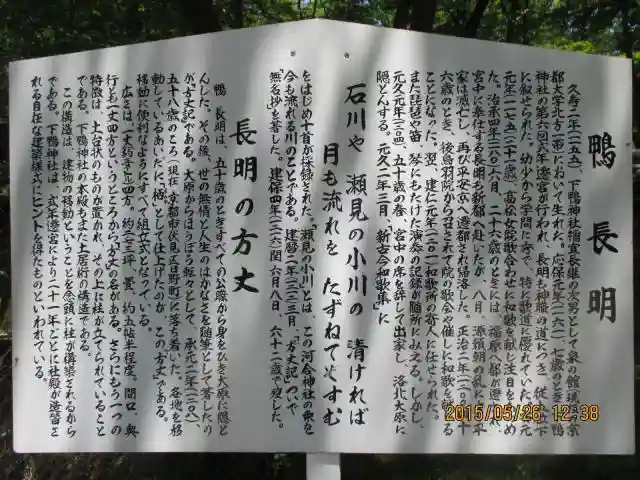 鴨長明
久寿二年(一一五五)、下鴨神社禰宜長継の次男として泉の館現
都大学北方(一帯)において生れた。応保元年(一一六一)七歳のとき下鴨
神社の第
に叙せられた。幼少から学問に秀で、特に歌道に優れていた。安元
元年(一一七五)二十一歳、高松女院歌合わせに和歌を献じ注目を
た。治承四年(一一八〇)六月、二十六歳のときには、福原へ都が遷
宮中に奉仕する長明も新都へ赴いたが、八月、源頼朝の乱に
家は滅亡し、再び平安京へ遷都され帰洛した。正治二年(一二〇〇)四十
六歳のとき、後鳥羽院から召されて院の歌会や催しに和歌を
ことになった。翌、建仁元年(一二〇一)和歌所の寄人に任ぜられた。
また琵琶や笛、琴にもたけた演奏の記録が随所にみえる。しかし、
元久元年(一二〇四)、五十歳の春、宮中の席を辞して出家し、洛北大原に
隠とんする。元久二年三月、新古今和歌集」に
石川や 瀬見の小川の 清ければ
月も流れを たずねてぞすむ
をはじめ十首が採録された。「瀬見の小川」とは、この河合神社の東を
今も流れる川のことである。建暦二年(一二一二)三月、「方丈記」ついで
「無名抄」を著した。建保四年(一二一六)閏六月八日、六十二歳で歿した。
長明の方丈
鴨 長明は、五十歳のときすべての公職から身をひき大原に隠と
んした。その後、世の無情と人生のはかなさを随筆として著したの
が「方丈記」である。大原からほうぼう転々として、承元二年(一二〇八)、
五十八歳のころ(現在、京都市伏見区日野町)に落ち着いた。各地を移
動しているあいだに「栖」として仕上げたのが、この方丈である。
移動に便利なようにすべて組立式となっている。
広さは、一丈約三㍍四方、約二・七三坪、畳、約五帖半程度。間口、奥
行とも一丈四方というところから「方丈」の名がある。さらにもう一つの
特徴は、土台状のものが置かれ、その上に柱が立てられていること
である。下鴨神社の本殿もまた土居桁の構造である。
この構造は、建物の移動ということを念頭に柱が構築されるから
である。下鴨神社は、式年遷宮により二十一年ごとに社殿が造替さ
れる自在な建築様式にヒントを得たものといわれている。
2015/05/26 12:38